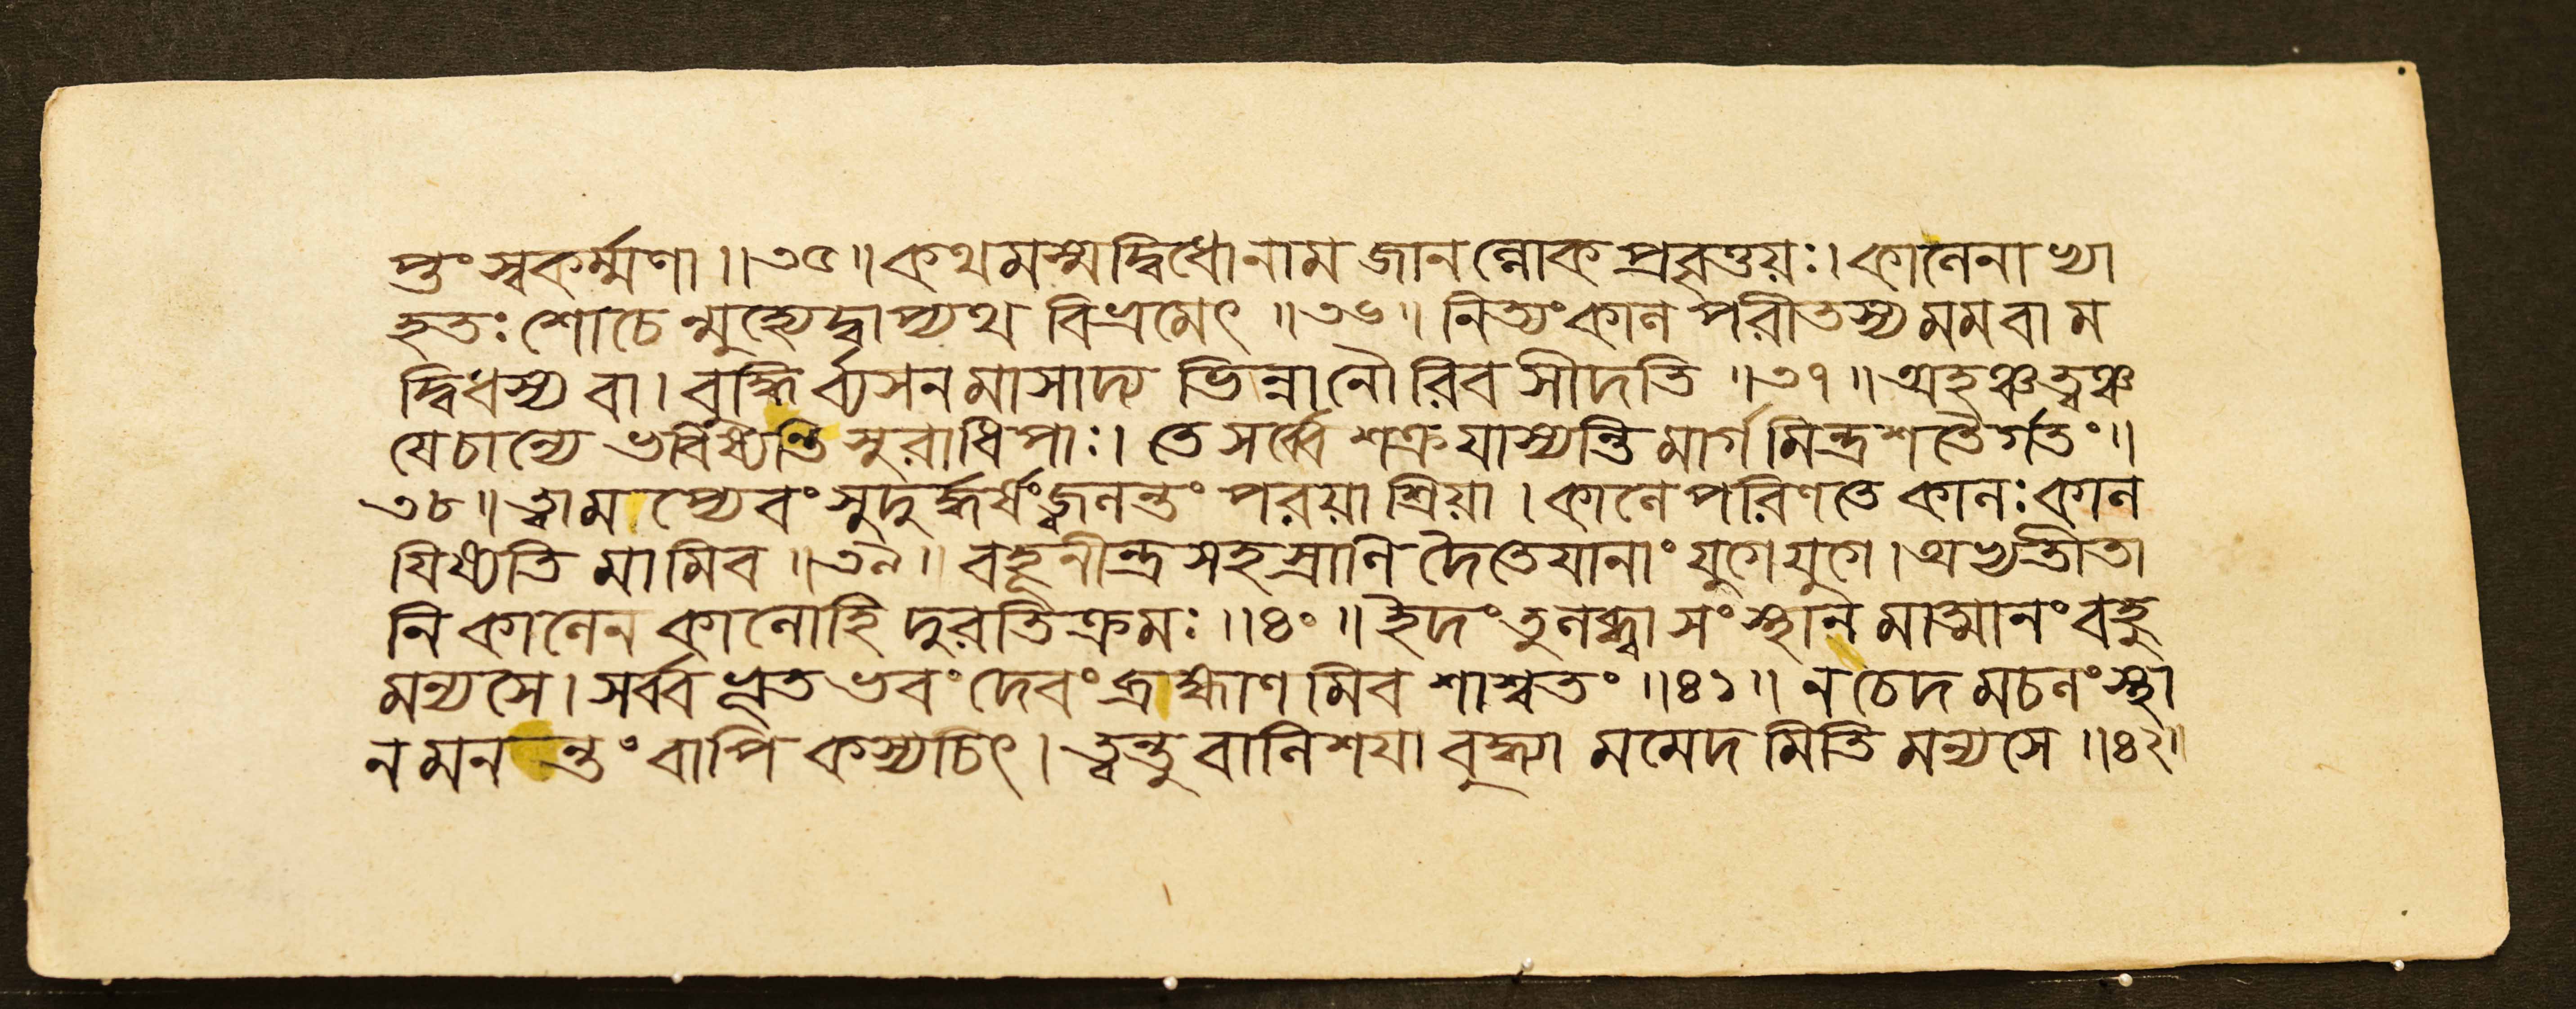 প্তুং স্বকর্ম্মণা ॥ ৩৫ ॥ কথমস্মদ্বিধোনাম জানন্লোকপ্রবৃত্তয়ঃ । কালেনাভ্যা
হতঃ শোচেন্মুহ্যেদ্বাপ্যথ বিভ্রমেৎ ॥ ৩৬ ॥ নিত্যং কালপরীতস্য মম বা ম
দ্বিধস্য বা । বুদ্ধির্ব্যসনমাসাদ্য ভিন্নানৌরিব সীদতি ॥ ৩৭ ॥ অহঞ্চ ত্বঞ্চ
যেচান্যে ভবিষ্যন্তি সুরাধিপাঃ । তে সর্ব্বে শক্র যাস্যন্তি মার্গমিন্দ্রশতৈর্গতং ॥
৩৮ ॥ ত্বামপ্যেবং সুদুর্দ্ধর্ষং জ্বলন্তং পরয়া শ্রিয়া । কালে পরিণতে কালঃ কাল
যিষ্যতি মামিব ॥ ৩৯ ॥ বহূনীন্দ্রসহস্রাণি দৈতেয়ানাং যুগে যুগে । অভ্যতীতা
নি কালেন কালোহি দুরতিক্রমঃ ॥ ৪০ ॥ ইদং তু লব্ধ্বা সংস্থানমাত্মানং বহু
মন্যসে । সর্ব্বভূতভবং দেবং ব্রহ্মাণমিব শাশ্বতং ॥ ৪১ ॥ ন চেদমচলং স্থা
নমনন্তং বাপি কস্যচিৎ । ত্বন্তু বালিশয়া বুদ্ধ্যা মমেদমিতি মন্যসে ॥ ৪২ ॥